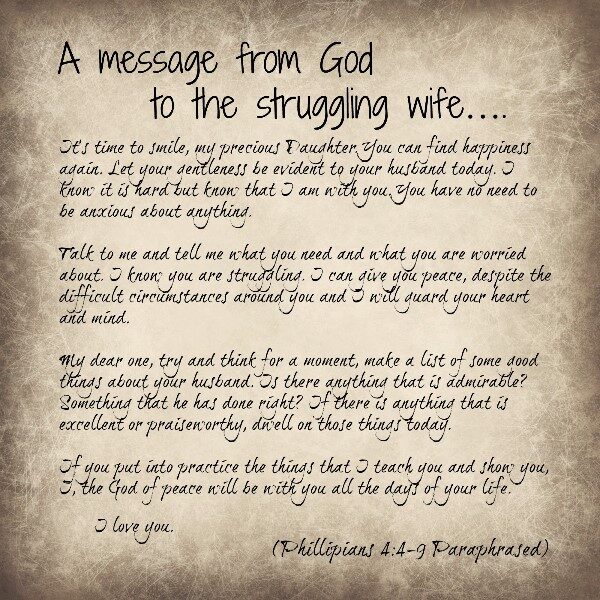 A message from God
to the struggling wife....
It's time to smile, my precious Daughter.You can find happiness
again. Let your gentleness be evident to your husband today. I
know it is hard but know that I am with you.You have no need to
be anxious about anything.
Talk to me and tell me what you need and what you are worried
about. I know you are struggling. I can give you peace, despite the
difficult circumstances around you and I will guard your heart
and mind.
My dear one, try and think for a moment, make a list of some good
things about your husband. Is there anything that is admirable?
Something that he has done right? If there is anything that is
excellent or praiseworthy, dwell on those things today.
If you put into practice the things that I teach you and show you,
I, the God of peace will be with you all the days of your life.
I love you.
(Phillipians 4:4-9 Paraphrased)